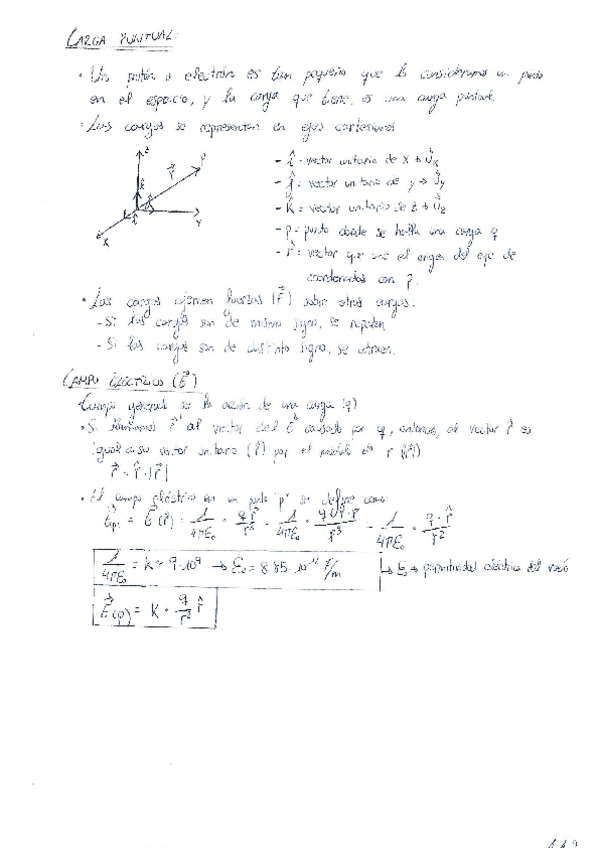 CARGA PUNTUAL:
• Un protón o electrón es tan pequeño que lo consideramos un punto
en el espacio, y la carga que tiene, es una carga puntual.
• Las cargas se representan en ejes cartesianos
z
p
r⃗
k̂
ĵ
î
x
y
- î = vector unitario de X → Ûx
- ĵ = vector unitario de y → Ûy
- k̂ = vector unitario de z → Ûz
- p = punto donde se halla una carga q
- r⃗ = vector que une el origen del eje de
coordenadas con p.
• Las cargas ejercen fuerzas (F⃗) sobre otras cargas.
- Si las cargas son de mismo signo, se repelen
- Si las cargas son de distinto signo, se atraen.
CAMPO ELÉCTRICO (E⃗)
Campo general es la acción de una carga (q)
• Si llamamos r⃗ al vector del E⃗ causado por q, entonces, el vector r⃗ es
igual a su vector unitario (r̂) por el módulo de r (|r⃗|)
r⃗ = r̂ · |r⃗|
• El campo eléctrico en un punto "p" se define como:
E⃗(p) = E⃗(r⃗) = 1/4πE₀ · q r⃗/r³ = 1/4πE₀ · q |r⃗| · r̂/r³ = 1/4πE₀ · q · r̂/r²
1/4πE₀ = K ≈ 9·10⁹ → E₀ = 8'85·10⁻¹² F/m
↳ E₀ → permitividad eléctrica del vacío
E⃗(p) = K · q/r² r̂